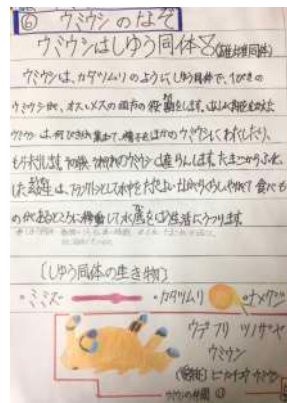 ⑥ ウミウシのなぞ
ウミウシはしゆう同体(雌雄同体)
ウミウシは、カタツムリのようにしゆう同体で、1ぴきの
ウミウシが、オスとメスの両方の役割をします。はんしょく期をむかえた
ウミウシは、何びきか集まって、精子をほかのウミウシにわたしたり、
もらったりします。その後、それぞれのウミウシは産らんします。たまごからふ化
した幼生は、プランクトンとして水中をただよいながらくらし、やがて食べも
のがあるところに移動して水底をはう生活にうつります。
〔しゆう同体の生き物〕
・ミミズ ・カタツムリ ・ナメクジ
ウデフリ ツノザヤ
ウミウシ
ウミウシの仲間